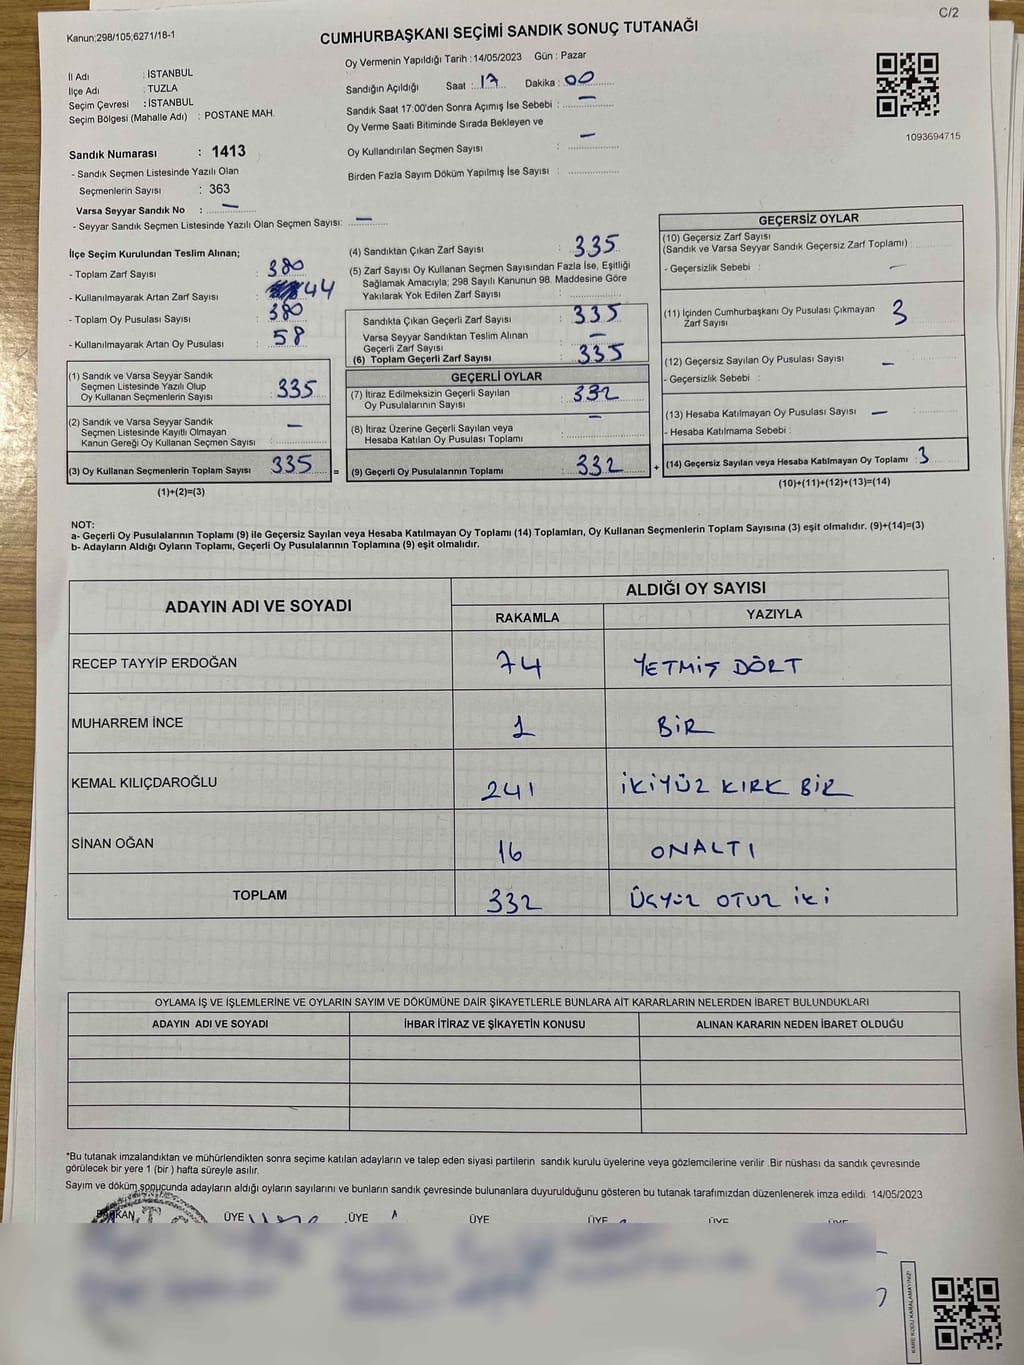 C/2
Kanun;298/105,6271/18-1
CUMHURBAŞKANI SEÇİMİ SANDIK SONUÇ TUTANAĞI
İl Adı : İSTANBUL
İlçe Adı : TUZLA
Seçim Çevresi : İSTANBUL
Seçim Bölgesi (Mahalle Adı) : POSTANE MAH.
Oy Vermenin Yapıldığı Tarih : 14/05/2023 Gün : Pazar
Sandığın Açıldığı Saat : 17 Dakika : 00
Sandık Saat 17:00'den Sonra Açımış İse Sebebi : —
Oy Verme Saati Bitiminde Sırada Bekleyen ve
Oy Kullandırılan Seçmen Sayısı : —
Birden Fazla Sayım Döküm Yapılmış İse Sayısı :
1093694715
Sandık Numarası : 1413
- Sandık Seçmen Listesinde Yazılı Olan
Seçmenlerin Sayısı : 363
Varsa Seyyar Sandık No : —
- Seyyar Sandık Seçmen Listesinde Yazılı Olan Seçmen Sayısı: —
İlçe Seçim Kurulundan Teslim Alınan;
- Toplam Zarf Sayısı : 380
- Kullanılmayarak Artan Zarf Sayısı : 44
- Toplam Oy Pusulası Sayısı : 380
- Kullanılmayarak Artan Oy Pusulası : 58
(1) Sandık ve Varsa Seyyar Sandık
Seçmen Listesinde Yazılı Olup
Oy Kullanan Seçmenlerin Sayısı : 335
(2) Sandık ve Varsa Seyyar Sandık
Seçmen Listesinde Kayıtlı Olmayan
Kanun Gereği Oy Kullanan Seçmen Sayısı : —
(3) Oy Kullanan Seçmenlerin Toplam Sayısı : 335 =
(1)+(2)=(3)
(4) Sandıktan Çıkan Zarf Sayısı : 335
(5) Zarf Sayısı Oy Kullanan Seçmen Sayısından Fazla İse, Eşitliği
Sağlamak Amacıyla; 298 Sayılı Kanunun 98. Maddesine Göre
Yakılarak Yok Edilen Zarf Sayısı :
Sandıkta Çıkan Geçerli Zarf Sayısı : 335
Varsa Seyyar Sandıktan Teslim Alınan
Geçerli Zarf Sayısı : —
(6) Toplam Geçerli Zarf Sayısı : 335
GEÇERLİ OYLAR
(7) İtiraz Edilmeksizin Geçerli Sayılan
Oy Pusulalarının Sayısı : 332
(8) İtiraz Üzerine Geçerli Sayılan veya
Hesaba Katılan Oy Pusulası Toplamı : —
(9) Geçerli Oy Pusulalarının Toplamı : 332 +
GEÇERSİZ OYLAR
(10) Geçersiz Zarf Sayısı
(Sandık ve Varsa Seyyar Sandık Geçersiz Zarf Toplamı) :
- Geçersizlik Sebebi : —
(11) İçinden Cumhurbaşkanı Oy Pusulası Çıkmayan
Zarf Sayısı : 3
(12) Geçersiz Sayılan Oy Pusulası Sayısı : —
- Geçersizlik Sebebi :
(13) Hesaba Katılmayan Oy Pusulası Sayısı : —
- Hesaba Katılmama Sebebi :
(14) Geçersiz Sayılan veya Hesaba Katılmayan Oy Toplamı : 3
(10)+(11)+(12)+(13)=(14)
NOT:
a- Geçerli Oy Pusulalarının Toplamı (9) ile Geçersiz Sayılan veya Hesaba Katılmayan Oy Toplamı (14) Toplamları, Oy Kullanan Seçmenlerin Toplam Sayısına (3) eşit olmalıdır. (9)+(14)=(3)
b- Adayların Aldığı Oyların Toplamı, Geçerli Oy Pusulalarının Toplamına (9) eşit olmalıdır.
ADAYIN ADI VE SOYADI
ALDIĞI OY SAYISI
RAKAMLA YAZIYLA
RECEP TAYYİP ERDOĞAN 74 YETMİŞ DÖRT
MUHARREM İNCE 1 BİR
KEMAL KILIÇDAROĞLU 241 İKİYÜZ KIRK BİR
SİNAN OĞAN 16 ONALTI
TOPLAM 332 ÜÇYÜZ OTUZ İKİ
OYLAMA İŞ VE İŞLEMLERİNE VE OYLARIN SAYIM VE DÖKÜMÜNE DAİR ŞİKAYETLERLE BUNLARA AİT KARARLARIN NELERDEN İBARET BULUNDUKLARI
ADAYIN ADI VE SOYADI İHBAR İTİRAZ VE ŞİKAYETİN KONUSU ALINAN KARARIN NEDEN İBARET OLDUĞU
*Bu tutanak imzalandıktan ve mühürlendikten sonra seçime katılan adayların ve talep eden siyasi partilerin sandık kurulu üyelerine veya gözlemcilerine verilir .Bir nüshası da sandık çevresinde
görülecek bir yere 1 (bir ) hafta süreyle asılır.
Sayım ve döküm sonucunda adayların aldığı oyların sayılarını ve bunların sandık çevresinde bulunanlara duyurulduğunu gösteren bu tutanak tarafımızdan düzenlenerek imza edildi. 14/05/2023
BAŞKAN ÜYE ÜYE ÜYE ÜYE ÜYE ÜYE
KARE KODU KARALAMAYINIZ!